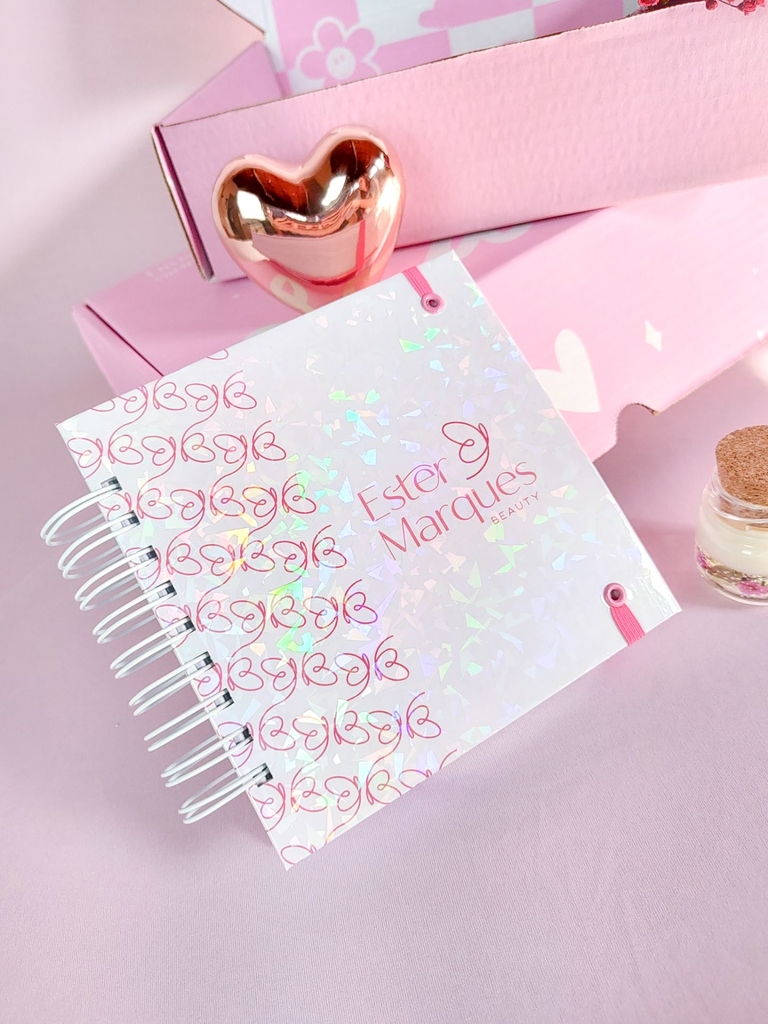 Ester
Marques
BEAUTY